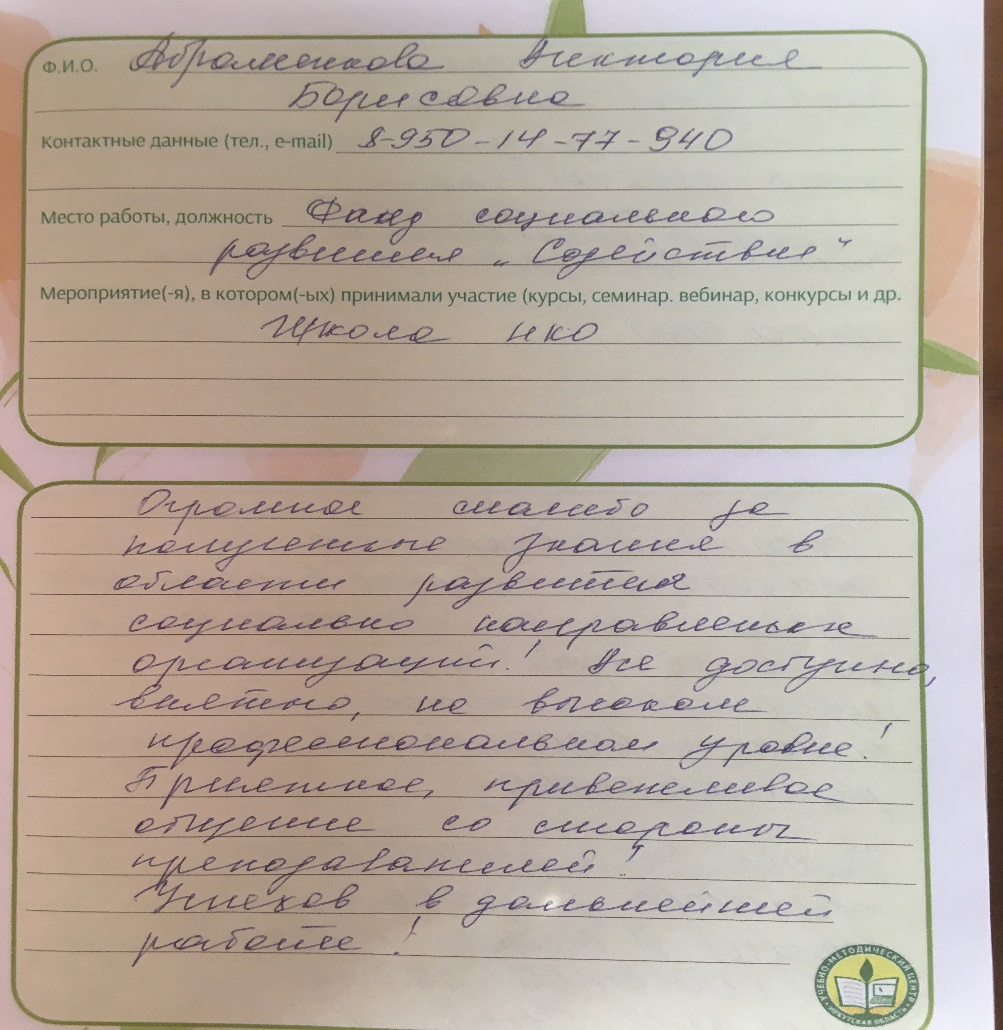 Ф.И.О. Абраменкова Виктория
Борисовна
Контактные данные (тел., e-mail) 8-950-14-77-940
Место работы, должность Фонд социального
развития „Содействие"
Мероприятие(-я), в котором(-ых) принимали участие (курсы, семинар. вебинар, конкурсы и др.
Школа НКО
Огромное спасибо за
полученные знания в
области развития
социально направленных
организаций! Все доступно,
внятно, на высоком
профессиональном уровне!
Приятное, привежливое
общение со стороны
преподавателей!
Успехов в дальнейшей
работе!
УЧЕБНО-МЕТОДИЧЕСКИЙ ЦЕНТР
ИРКУТСКАЯ ОБЛАСТЬ